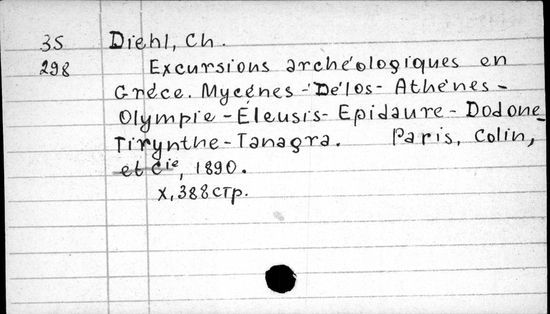 35 Diehl, Ch.
298 Excursions archéologiques en
Gréce. Mycénes - Délos - Athénes -
Olympie - Éleusis - Epidaure - Dodone -
Tirynthe - Tanagra. Paris, Colin,
et Cie, 1890.
X, 388 стр.